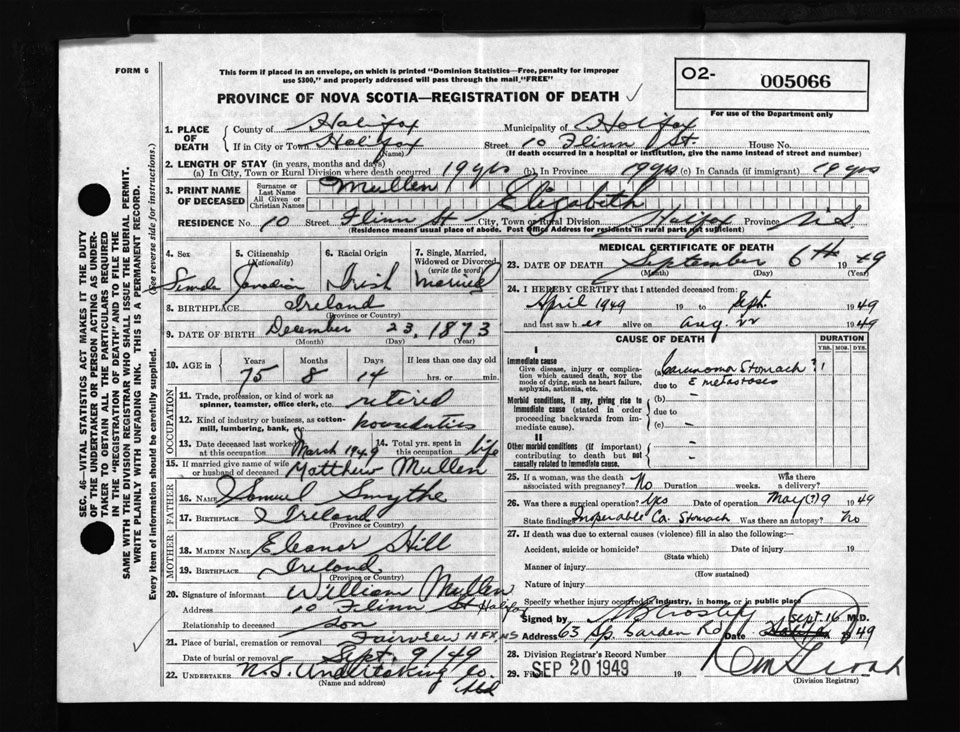 FORM 6
This form if placed in an envelope, on which is printed "Dominion Statistics—Free, penalty for improper
use $300," and properly addressed will pass through the mail "FREE"
O2- 005066
PROVINCE OF NOVA SCOTIA—REGISTRATION OF DEATH ✓
For use of the Department only
1. PLACE OF DEATH
County of Halifax Municipality of Halifax
If in City or Town Halifax (Name) Street 10 Flinn St. House No.
(If death occurred in a hospital or institution, give the name instead of street and number)
2. LENGTH OF STAY (in years, months and days)
(a) In City, Town or Rural Division where death occurred 19 yrs (b) In Province 19 yrs (c) In Canada (if immigrant) 19 yrs
3. PRINT NAME OF DECEASED
Surname or Last Name Mullen
All Given or Christian Names Elizabeth
RESIDENCE No. 10 Street Flinn St City, Town or Rural Division Halifax Province N.S.
(Residence means usual place of abode. Post Office Address for residents in rural parts not sufficient)
4. Sex 5. Citizenship (Nationality) 6. Racial Origin 7. Single, Married, Widowed or Divorced (write the word)
Female Canadian Irish Married
8. BIRTHPLACE Ireland
(Province or Country)
9. DATE OF BIRTH December 23, 1873
(Month) (Day) (Year)
10. AGE in Years Months Days If less than one day old
75 8 14 hrs. or min.
OCCUPATION
11. Trade, profession, or kind of work as spinner, teamster, office clerk, etc. retired
12. Kind of industry or business, as cotton-mill, lumbering, bank, etc. houseduties
13. Date deceased last worked at this occupation March 1949 14. Total yrs. spent in this occupation life
15. If married give name of wife or husband of deceased Matthew Mullen
FATHER
16. NAME Samuel Smythe
17. BIRTHPLACE Ireland
(Province or Country)
MOTHER
18. MAIDEN NAME Eleanor Hill
19. BIRTHPLACE Ireland
(Province or Country)
20. Signature of informant William Mullen
Address 10 Flinn St Halifax
Relationship to deceased son
21. Place of burial, cremation or removal Fairview HFX NS
Date of burial or removal Sept. 9/49
22. UNDERTAKER N.S. Undertaking Co. Ltd
(Name and address)
MEDICAL CERTIFICATE OF DEATH
23. DATE OF DEATH September 6th 1949
(Month) (Day) (Year)
24. I HEREBY CERTIFY that I attended deceased from:
April 1949 19 to Sept. 1949
and last saw her alive on Aug. 22 1949
CAUSE OF DEATH DURATION
YRS. MOS. DYS.
I
Immediate cause
Give disease, injury or complication which caused death, not the mode of dying, such as heart failure, asphyxia, asthenia, etc.
(a) Carcinoma Stomach ?!
due to c metastases
Morbid conditions, if any, giving rise to immediate cause (stated in order proceeding backwards from immediate cause).
(b) –
due to
(c) –
II
Other morbid conditions (if important) contributing to death but not causally related to immediate cause.
25. If a woman, was the death associated with pregnancy? No Duration weeks. Was there a delivery?
26. Was there a surgical operation? Yes Date of operation May (?) 9 1949
State findings Inoperable Ca. Stomach Was there an autopsy? No
27. If death was due to external causes (violence) fill in also the following:—
Accident, suicide or homicide? Date of injury 19
(State which)
Manner of injury
(How sustained)
Nature of injury
Specify whether injury occurred in industry, in home, or in public place
Signed by M.D.
Address 63 Sp. Garden Rd Date Sept. 16 1949
28. Division Registrar's Record Number
29. Filed SEP 20 1949 19
(Division Registrar)
SEC. 46—VITAL STATISTICS ACT MAKES IT THE DUTY
OF THE UNDERTAKER OR PERSON ACTING AS UNDER-
TAKER TO OBTAIN ALL THE PARTICULARS REQUIRED
IN THE "REGISTRATION OF DEATH" AND TO FILE THE
SAME WITH THE DIVISION REGISTRAR WHO SHALL ISSUE THE BURIAL PERMIT.
WRITE PLAINLY WITH UNFADING INK. THIS IS A PERMANENT RECORD.
Every item of information should be carefully supplied. (See reverse side for instructions.)